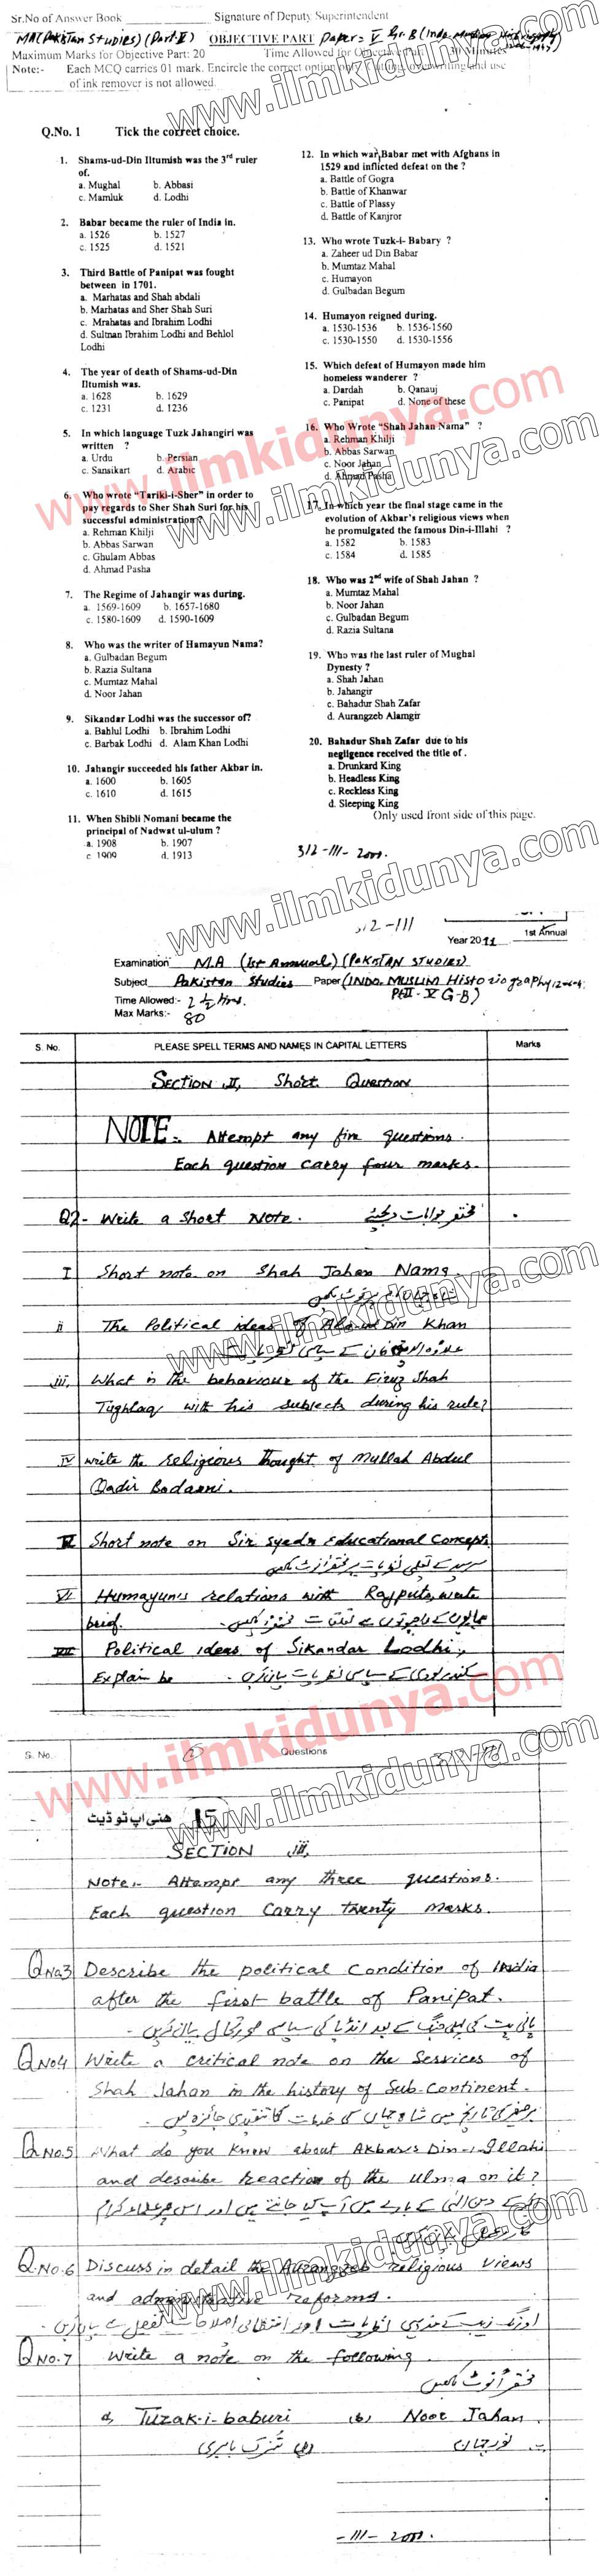 Sr.No of Answer Book Signature of Deputy Superintendent
MA (Pakistan Studies) (Part II) OBJECTIVE PART Paper = V Gr. B (Indo. Muslim
Maximum Marks for Objective Part: 20 Time Allowed for Objective 30 Minutes
Note:- Each MCQ carries 01 mark. Encircle the correct option overwriting and use
of ink remover is not allowed.
Q.No. 1 Tick the correct choice.
1. Shams-ud-Din Iltumish was the 3rd ruler
of.
a. Mughal b. Abbasi
c. Mamluk d. Lodhi
2. Babar became the ruler of India in.
a. 1526 b. 1527
c. 1525 d. 1521
3. Third Battle of Panipat was fought
between in 1701.
a. Marhatas and Shah abdali
b. Marhatas and Sher Shah Suri
c. Mrahatas and Ibrahim Lodhi
d. Sultnan Ibrahim Lodhi and Behlol
Lodhi
4. The year of death of Shams-ud-Din
Iltumish was.
a. 1628 b. 1629
c. 1231 d. 1236
5. In which language Tuzk Jahangiri was
written ?
a. Urdu b. Persian
c. Sansikart d. Arabic
6. Who wrote "Tariki-i-Sher" in order to
pay regards to Sher Shah Suri for his
successful administration ?
a. Rehman Khilji
b. Abbas Sarwan
c. Ghulam Abbas
d. Ahmad Pasha
7. The Regime of Jahangir was during.
a. 1569-1609 b. 1657-1680
c. 1580-1609 d. 1590-1609
8. Who was the writer of Hamayun Nama?
a. Gulbadan Begum
b. Razia Sultana
c. Mumtaz Mahal
d. Noor Jahan
9. Sikandar Lodhi was the successor of?
a. Bahlul Lodhi b. Ibrahim Lodhi
c. Barbak Lodhi d. Alam Khan Lodhi
10. Jahangir succeeded his father Akbar in.
a. 1600 b. 1605
c. 1610 d. 1615
11. When Shibli Nomani became the
principal of Nadwat ul-ulum ?
a. 1908 b. 1907
c. 1909 d. 1913
12. In which war Babar met with Afghans in
1529 and inflicted defeat on the ?
a. Battle of Gogra
b. Battle of Khanwar
c. Battle of Plassy
d. Battle of Kanjror
13. Who wrote Tuzk-i- Babary ?
a. Zaheer ud Din Babar
b. Mumtaz Mahal
c. Humayon
d. Gulbadan Begum
14. Humayon reigned during.
a. 1530-1536 b. 1536-1560
c. 1530-1550 d. 1530-1556
15. Which defeat of Humayon made him
homeless wanderer ?
a. Dardah b. Qanauj
c. Panipat d. None of these
16. Who Wrote "Shah Jahan Nama" ?
a. Rehman Khilji
b. Abbas Sarwan
c. Noor Jahan
d. Ahmad Pasha
17. In which year the final stage came in the
evolution of Akbar's religious views when
he promulgated the famous Din-i-Illahi ?
a. 1582 b. 1583
c. 1584 d. 1585
18. Who was 2nd wife of Shah Jahan ?
a. Mumtaz Mahal
b. Noor Jahan
c. Gulbadan Begum
d. Razia Sultana
19. Who was the last ruler of Mughal
Dynesty ?
a. Shah Jahan
b. Jahangir
c. Bahadur Shah Zafar
d. Aurangzeb Alamgir
20. Bahadur Shah Zafar due to his
negligence received the title of .
a. Drunkard King
b. Headless King
c. Reckless King
d. Sleeping King
Only used front side of this page.
312-III-2000.
www.ilmkidunya.com
312-III
Year 2011 1st Annual
Examination M.A (1st Annual) (PAKISTAN STUDIES)
Subject Pakistan Studies Paper (INDO. MUSLIM Historiography
Pt-II - V G-B)
Time Allowed:- 2 ½ Hrs.
Max Marks:- 80
S. No. PLEASE SPELL TERMS AND NAMES IN CAPITAL LETTERS Marks
SECTION II, Short Question
NOTE:- Attempt any five questions.
Each question carry four marks.
Q2- Write a Short Note. مختصر جوابات دیجئے
I Short note on Shah Jahan Nama.
ii The Political ideas of Ala-ud-Din Khan
iii. What is the behaviour of the Firuz Shah
Tughlaq with his subjects during his rule?
IV Write the religious thought of Mullah Abdul
Qadir Badaoni.
V Short note on Sir Syed's Educational Concepts.
سرسید کے تعلیمی نظریات پر مختصر نوٹ لکھیں
VI Humayun's relations with Rajputs, write
brief. ہمایوں کے راجپوتوں سے تعلقات مختصر لکھیں۔
VII Political ideas of Sikandar Lodhi,
Explain be سکندر لودھی کے سیاسی نظریات بیان کریں۔
S. No. (2) Questions
ھنی اپ ٹو ڈیٹ 15
SECTION iii.
Note:- Attempt any three questions.
Each question Carry Twenty marks.
Q No.3 Describe the political Condition of India
after the first battle of Panipat.
پانی پت کی پہلی جنگ کے بعد انڈیا کی سیاسی صورتحال بیان کریں۔
Q No.4 Write a critical note on the Services of
Shah Jahan in the history of Sub-Continent.
برصغیر کی تاریخ میں شاہ جہاں کی خدمات کا تنقیدی جائزہ لیں۔
Q No.5 What do you know about Akbar's Din-i-Illahi
and describe reaction of the ulma on it?
کے دین الٰہی کے بارے میں آپ کیا جانتے ہیں اور اس پر علماء کرام
Q.No.6 Discuss in detail the Aurangzeb religious views
and administrative reforms.
اورنگ زیب کے مذہبی نظریات اور انتظامی اصلاحات تفصیل سے بیان کریں۔
Q No.7 Write a note on the following.
مختصر نوٹ لکھیں
a, Tuzak-i-baburi (b) Noor Jahan.
تزک بابری ب۔ نور جہاں
-III-2000.